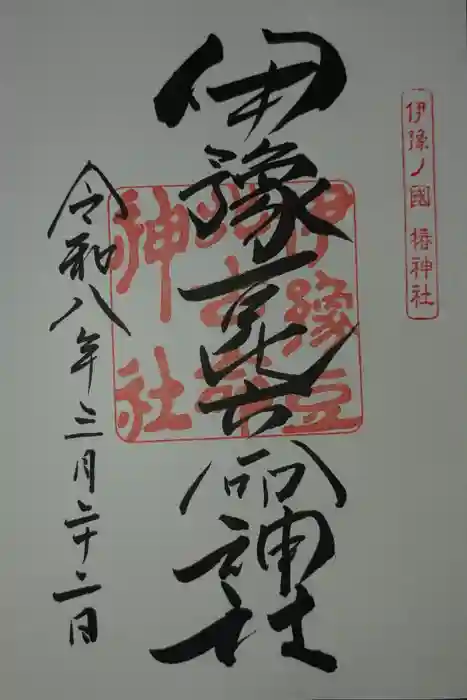 伊豫ノ國 椿神社
伊豫豆比古命神社
伊豫豆
比古命
神社
令和八年三月二十二日